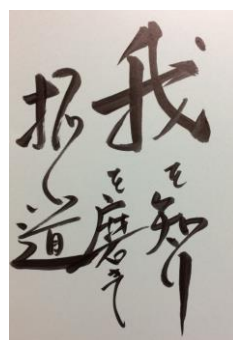 我を知り
を磨き
拓く道